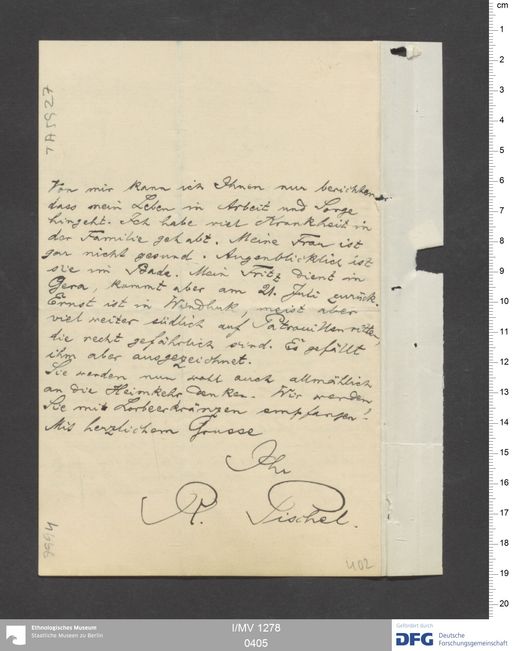 Von mir kann ich Ihnen nur berichten,
dass mein Leben in Arbeit und Sorge
hingeht. Ich habe viel Krankheit in
der Familie gehabt. Meine Frau ist
gar nicht gesund. Augenblicklich ist
sie im Bade. Mein Fritz dient in
Gera, kommt aber am 21. Juli zurück.
Ernst ist in Windhuk, meist aber
viel weiter südlich auf Patrouillenritten,
die recht gefährlich sind. Es gefällt
ihm aber ausgezeichnet.
Sie werden nun wohl auch allmählich
an die Heimkehr denken. Wir werden
Sie mit Lorbeerkränzen empfangen!
Mit herzlichem Grusse
Ihr
R. Pischel.
402
cm
1
2
3
4
5
6
7
8
9
10
11
12
13
14
15
16
17
18
19
20
Ethnologisches Museum
Staatliche Museen zu Berlin
I/MV 1278
0405
Gefördert durch
DFG Deutsche
Forschungsgemeinschaft